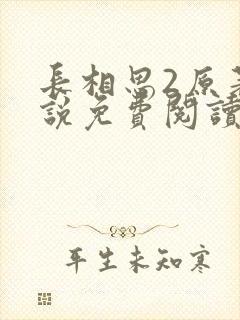 長相思2原著
說免費閱讀
平生未知寒